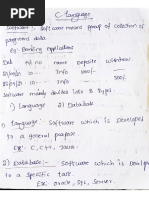 C-Language
Software :- Soft ware means group of collection of
programs data.
Eg: Banking Applications
Dat P/d no name deposite withdraw
Info 500/- -
Info - 200/-
Software mainly divided into 2 types
1) Language 2) Database
1) Language :- Software which is developed
to a general purpose.
Ex: C++, Java.
2) Database:- Software which is develop
to a specific task.
Ex: oracle, SQL, Server.